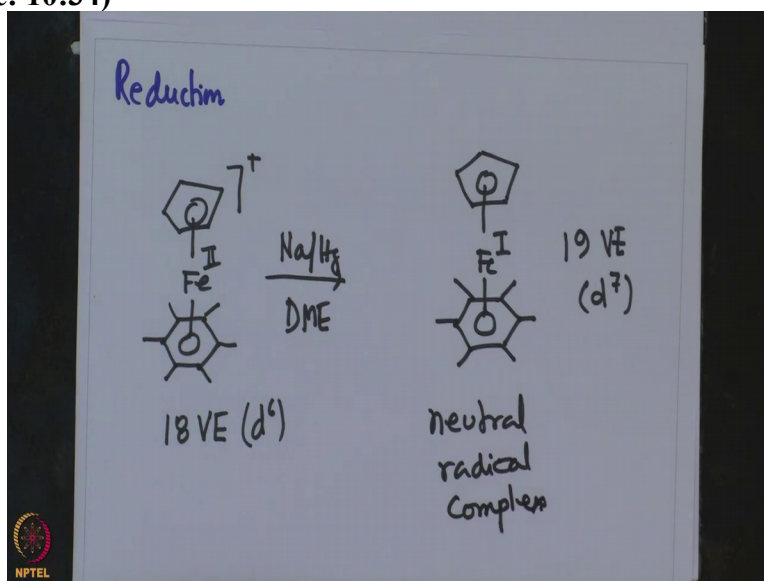 c: 10:34)
Reduction
]+
II
Fe
Na/Hg
DME
18 VE (d⁶)
I
Fe
19 VE
(d⁷)
neutral
radical
Complex
NPTEL